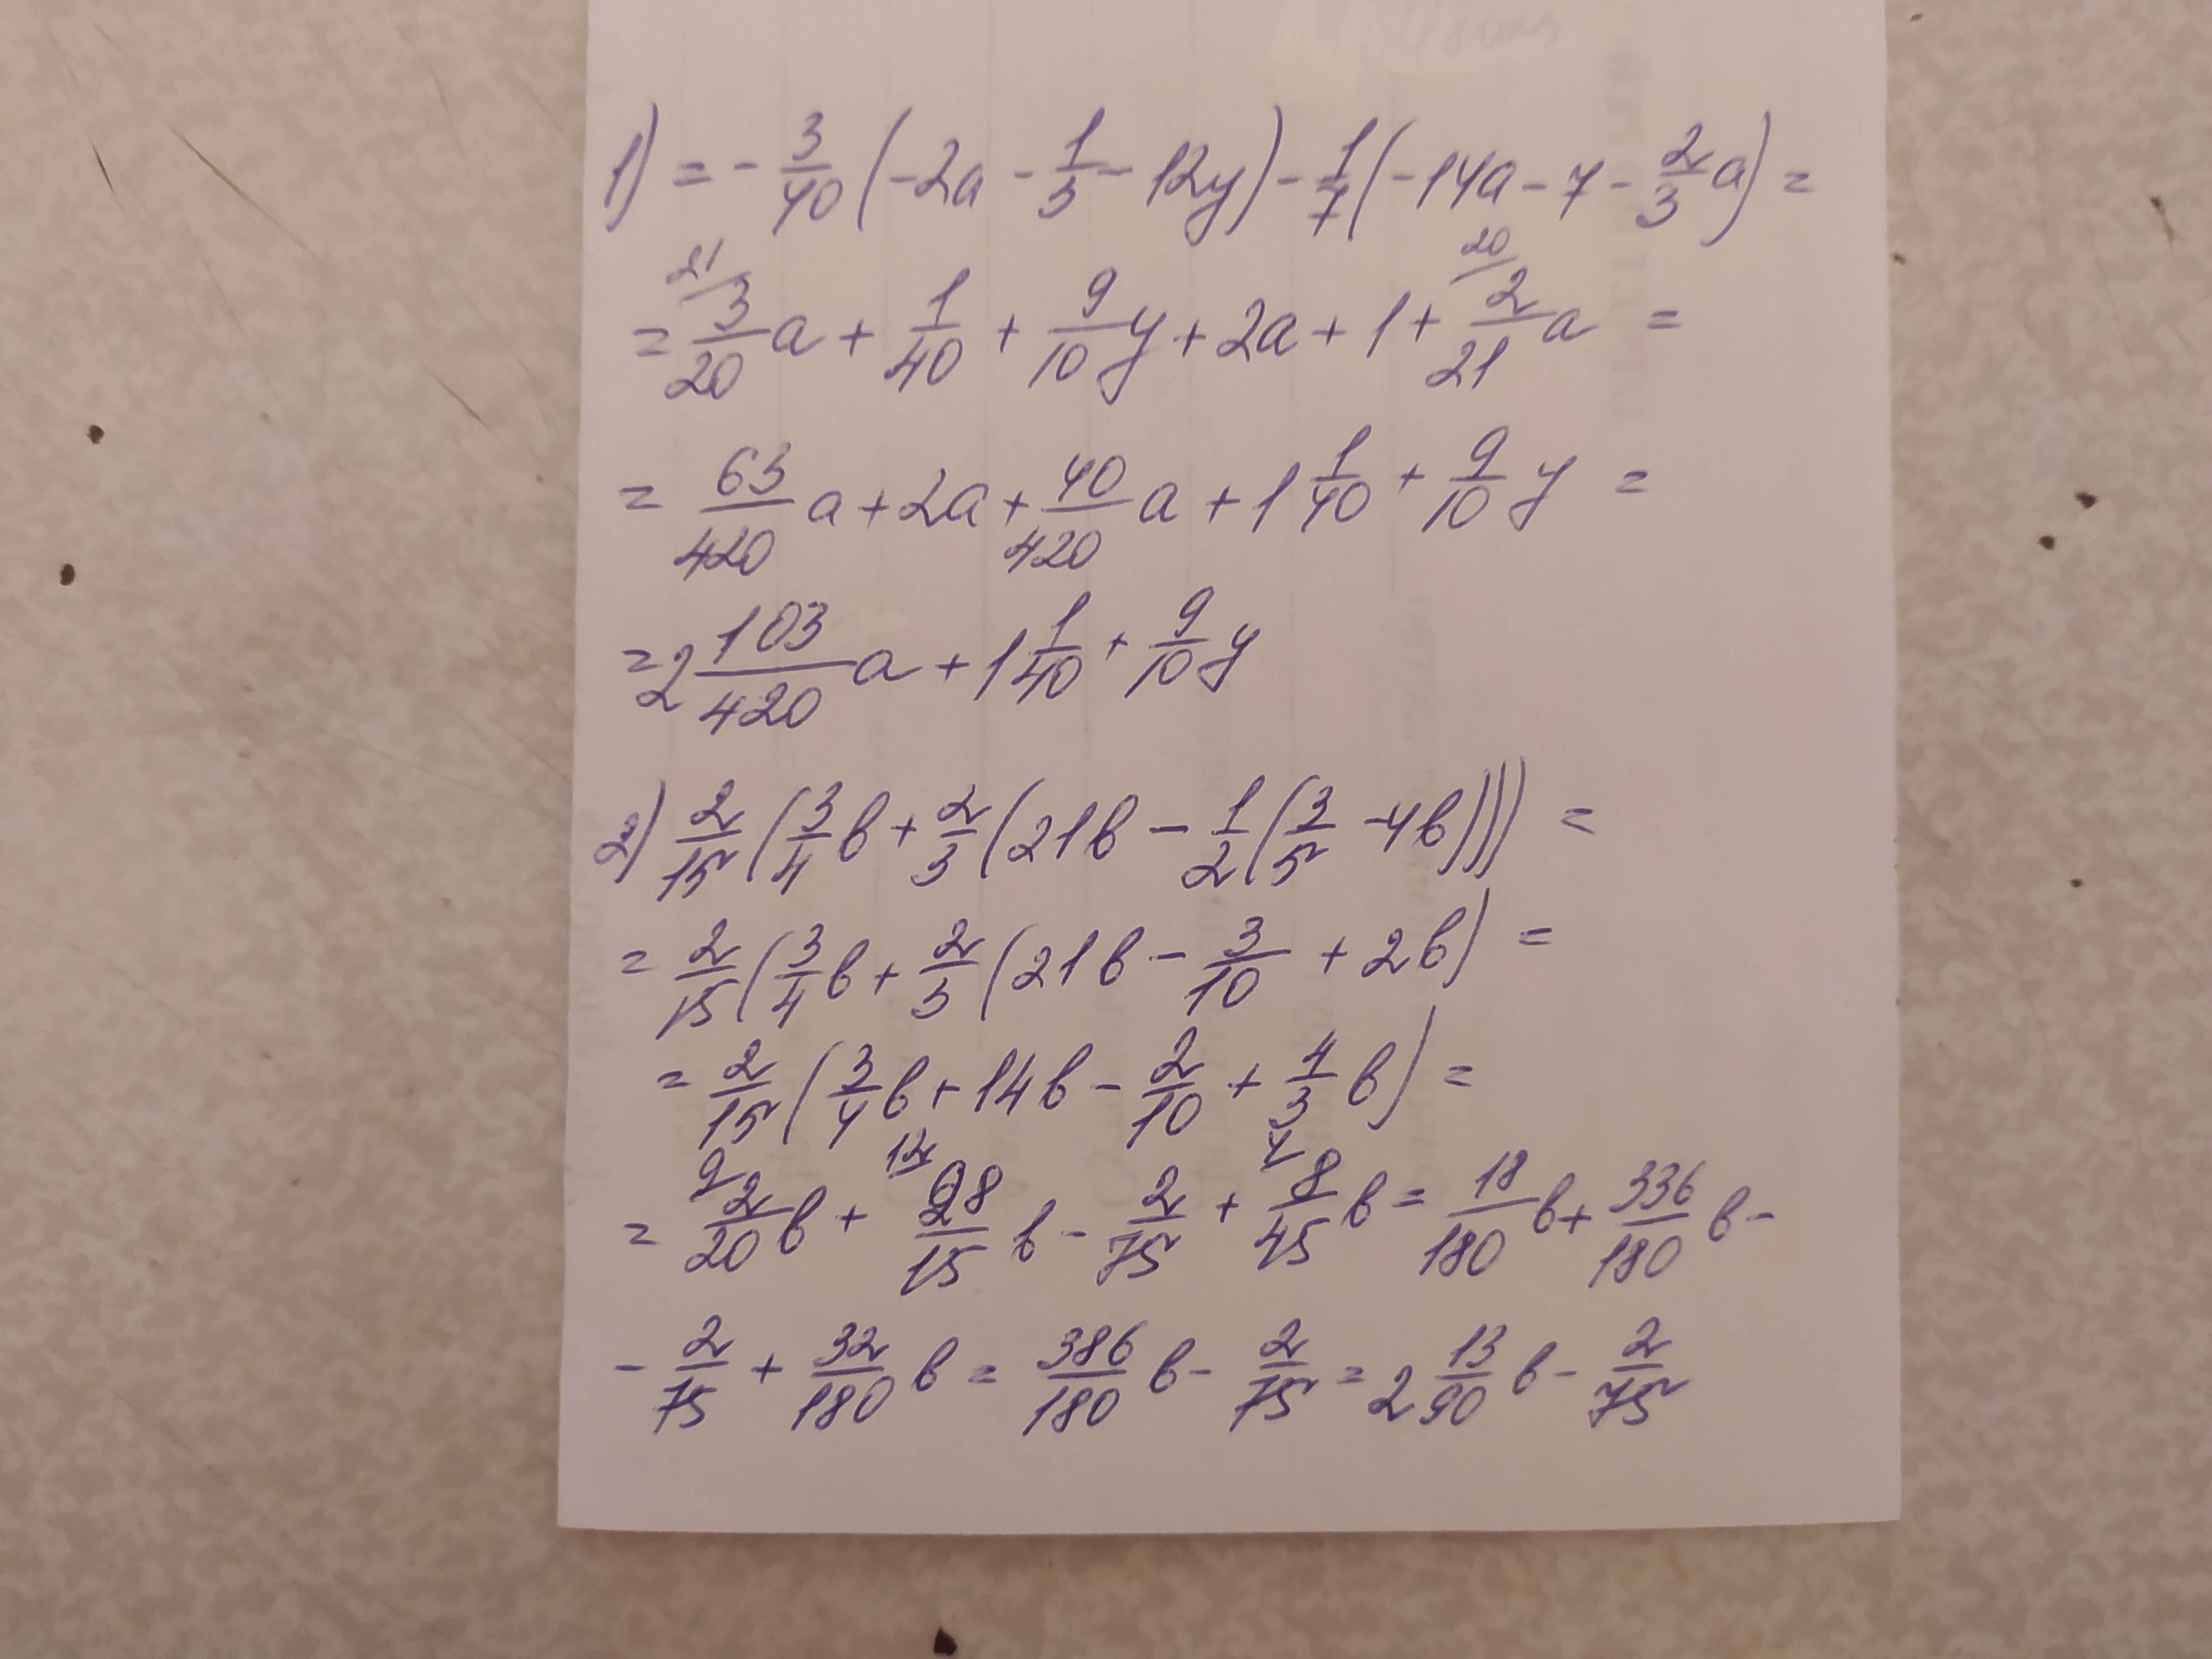 1) = - 3/40 (-2a - 1/3 - 12y) - 1/7 (-14a - 7 - 2/3 a) =
21/ 20/
= 3/20 a + 1/40 + 9/10 y + 2a + 1 + 2/21 a =
= 63/420 a + 2a + 40/420 a + 1 1/40 + 9/10 y =
= 2 103/420 a + 1 1/40 + 9/10 y
2) 2/15 (3/4 b + 2/3 (21b - 1/2 (3/5 - 4b))) =
= 2/15 (3/4 b + 2/3 (21b - 3/10 + 2b) =
= 2/15 (3/4 b + 14b - 2/10 + 4/3 b) =
9 12 4
= 2/20 b + 28/15 b - 2/75 + 8/45 b = 18/180 b + 336/180 b -
- 2/75 + 32/180 b = 386/180 b - 2/75 = 2 13/90 b - 2/75